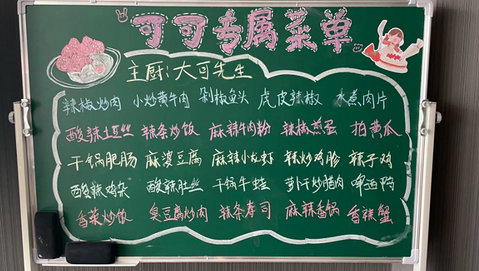 可可专属菜单
主厨:大可先生
辣椒炒肉 小炒黄牛肉 剁椒鱼头 虎皮辣椒 水煮肉片
酸辣土豆丝 辣条炒饭 麻辣牛肉粉 辣椒煎蛋 拍黄瓜
干锅肥肠 麻婆豆腐 麻辣小龙虾 辣炒鸡胗 辣子鸡
酸辣鸡杂 酸辣肚丝 干锅牛蛙 萝卜干炒腊肉 啤酒鸭
香菜炒饭 臭豆腐炒肉 辣条寿司 麻辣香锅 香辣蟹